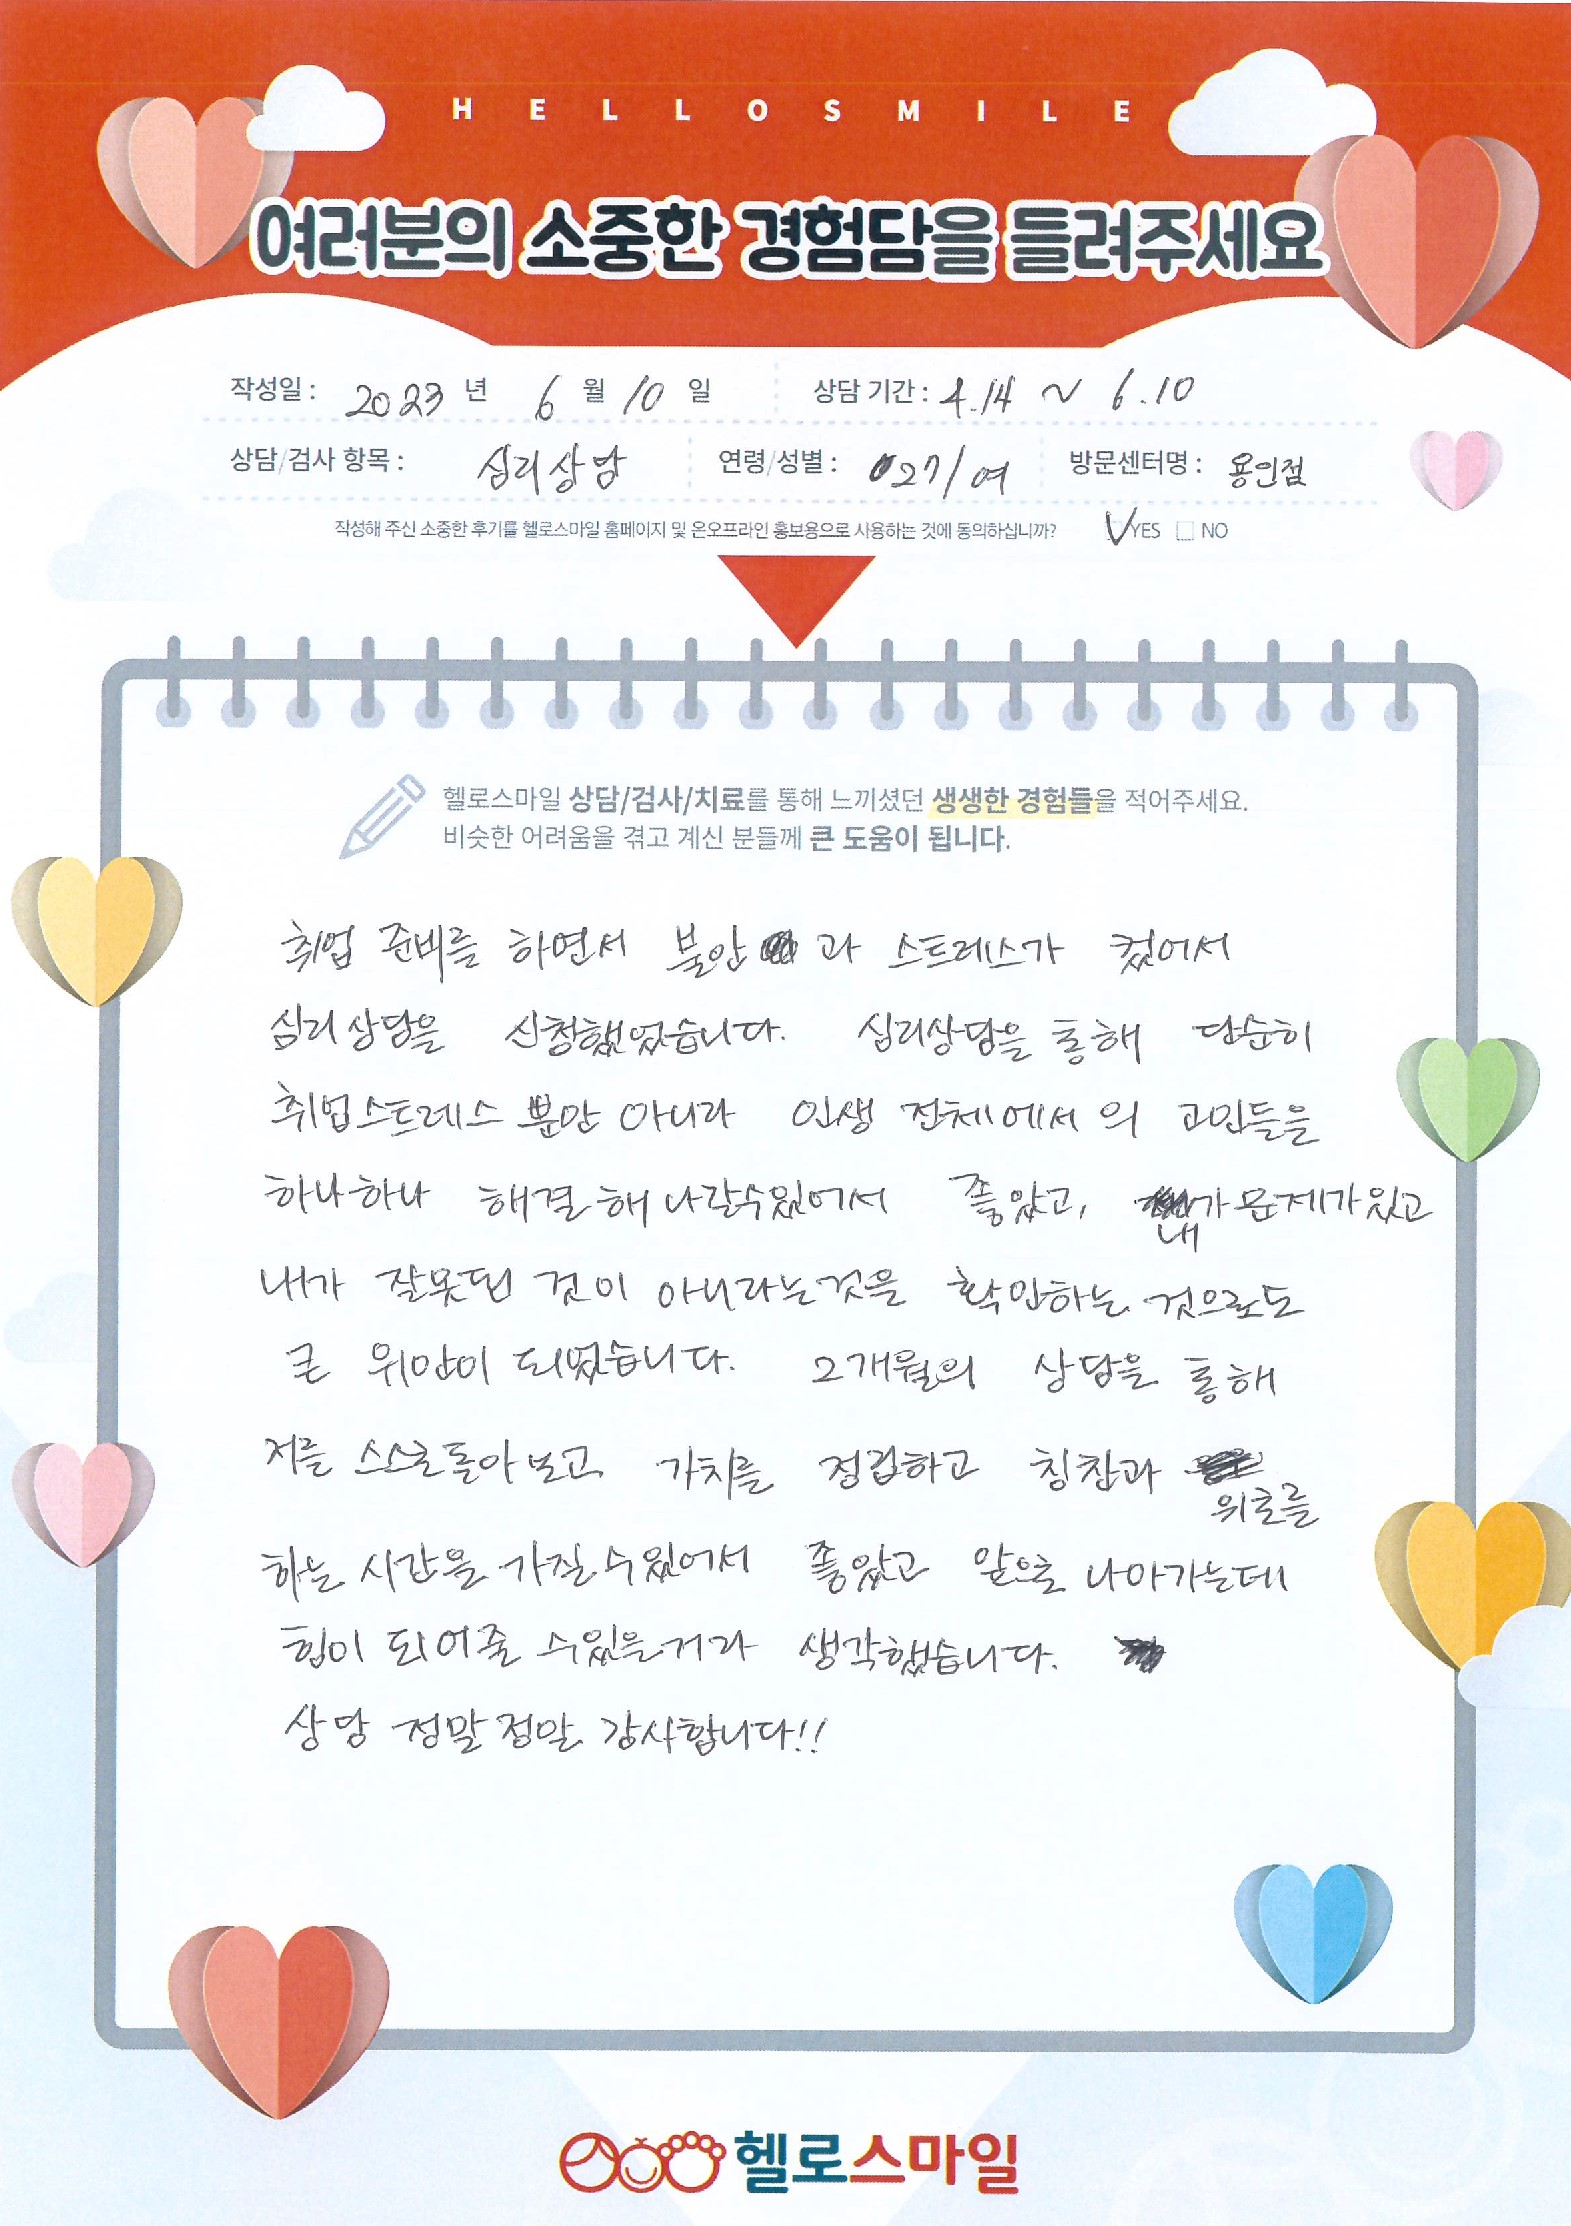 HELLOSMILE
여러분의 소중한 경험담을 들려주세요
작성일 : 2023 년 6 월 10 일 상담 기간 : 4.14 ~ 6.10
상담/검사 항목 : 심리상담 연령/성별 : 27/여 방문센터명 : 용인점
작성해 주신 소중한 후기를 헬로스마일 홈페이지 및 온오프라인 홍보용으로 사용하는 것에 동의하십니까? V YES NO
헬로스마일 상담/검사/치료를 통해 느끼셨던 생생한 경험들을 적어주세요.
비슷한 어려움을 겪고 계신 분들께 큰 도움이 됩니다.
취업 준비를 하면서 불안과 스트레스가 컸어서
심리상담을 신청했었습니다. 심리상담을 통해 단순히
취업스트레스 뿐만 아니라 인생 전체에서의 고민들을
하나하나 해결해 나갈수있어서 좋았고, 내가 문제가있고
내가 잘못된 것이 아니라는것을 확인하는 것으로도
큰 위안이 되었습니다. 2개월의 상담을 통해
저를 스스로 돌아보고 가치를 정립하고 칭찬과 위로를
하는 시간을 가질수있어서 좋았고 앞으로 나아가는데
힘이 되어줄 수있을거라 생각했습니다.
상담 정말정말 감사합니다!!
헬로스마일